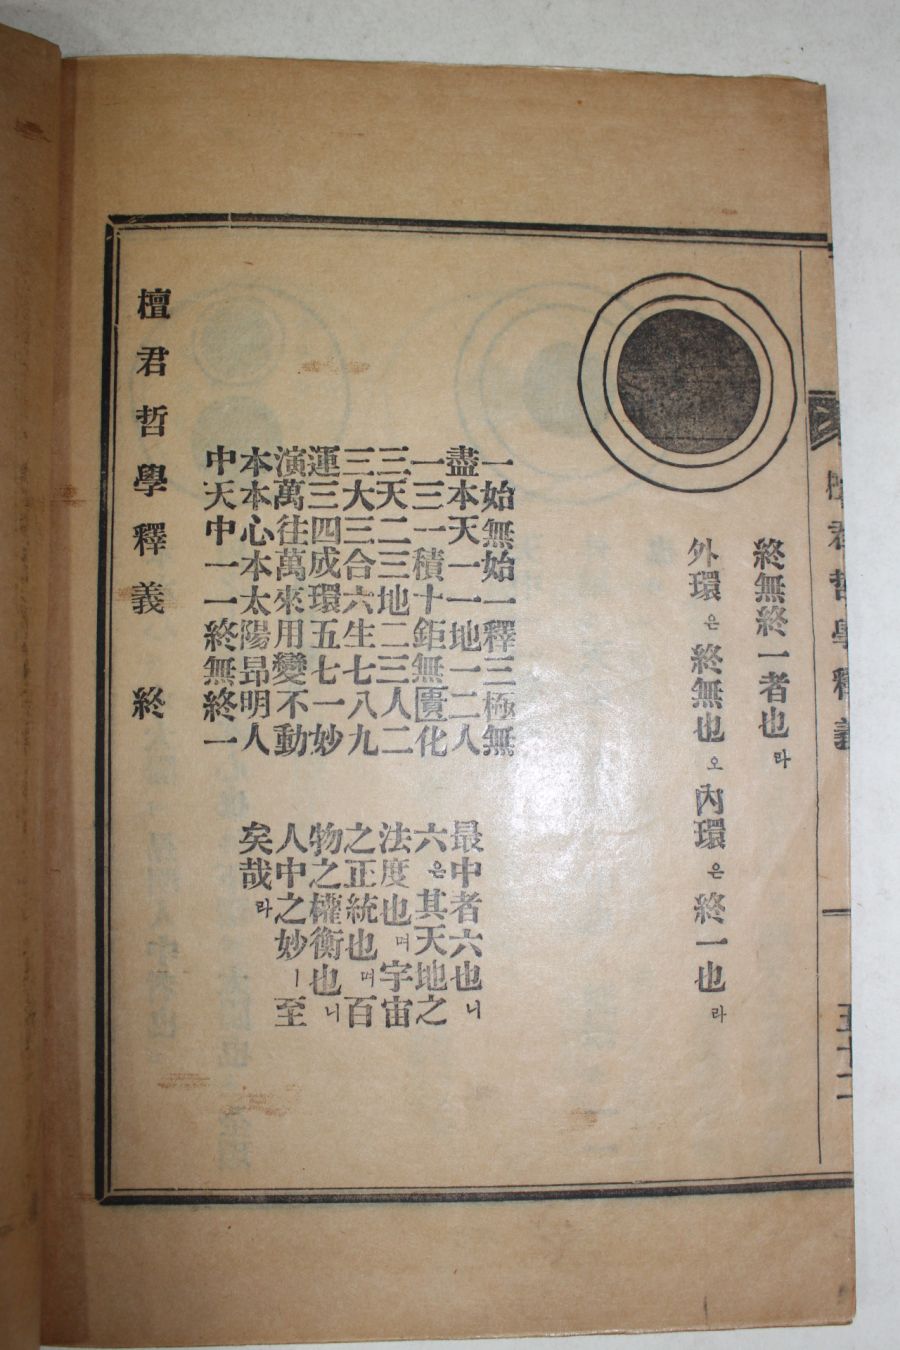 檀君哲學釋義
五十二
終無終一者也라
外環은終無也오內環은終一也라
一始無始一釋三極無
盡本天一一地一二人
一三一積十鉅無匱化
三天二三地二三人二
三大三合六生七八九
運三四成環五七一妙
演萬往萬來用變不動
本本心本太陽昂明人
中天中一一終無終一
最中者六也니
六은其天地之
法度也며宇宙
之正統也며百
物之權衡也니
人中之妙ㅣ至
矣哉라
檀君哲學釋義 終